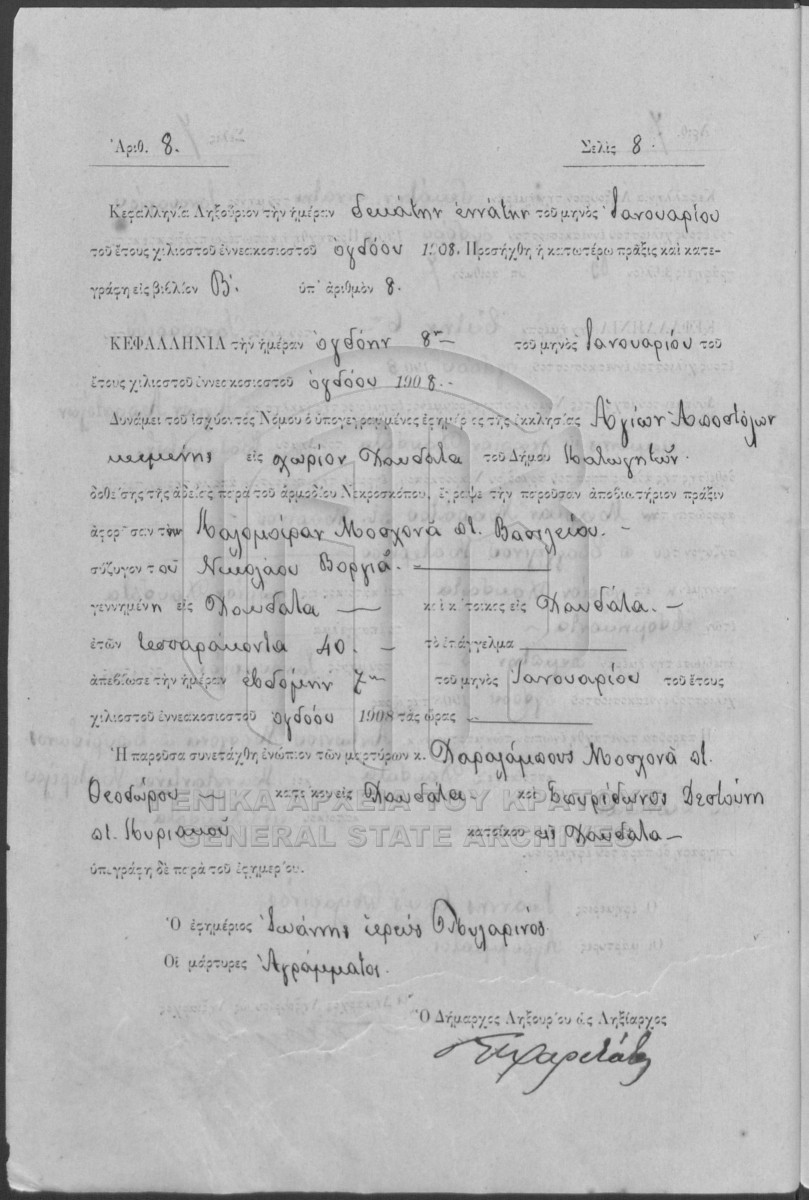 Ἀριθ. 8. Σελὶς 8.
Κεφαλληνία Ληξούριον τὴν ἡμέραν δεκάτην ἐννάτην τοῦ μηνὸς Ἰανουαρίου
τοῦ ἔτους χιλιοστοῦ ἐννεακοσιοστοῦ ὀγδόου 1908. Προσήχθη ἡ κατωτέρω πρᾶξις καὶ κατε-
γράφη εἰς βιβλίον Β'. ὑπ' ἀριθμὸν 8.
ΚΕΦΑΛΛΗΝΙΑ τὴν ἡμέραν ὀγδόην 8ην — τοῦ μηνὸς Ἰανουαρίου τοῦ
ἔτους χιλιοστοῦ ἐννεακοσιοστοῦ ὀγδόου 1908.—
Δυνάμει τοῦ ἰσχύοντος Νόμου ὁ ὑπογεγραμμένος ἐφημέριος τῆς ἐκκλησίας Ἁγίων Ἀποστόλων
κειμένης εἰς χωρίον Χαυδάτα τοῦ Δήμου Κατωγητῶν.
δοθείσης τῆς ἀδείας παρὰ τοῦ ἁρμοδίου Νεκροσκόπου, ἔγραψε τὴν παροῦσαν ἀποβιωτήριον πρᾶξιν
ἀφορῶσαν τὴν Καλομοίραν Μοσχονᾶ π. Βασιλείου. —
σύζυγον τοῦ Νικολάου Βοργιᾶ.
γεννημένη εἰς Χαυδάτα — καὶ κάτοικος εἰς Χαυδάτα. —
ἐτῶν τεσσαράκοντα 40. — τὸ ἐπάγγελμα
ἀπεβίωσε τὴν ἡμέραν ἑβδόμην 7ην τοῦ μηνὸς Ἰανουαρίου τοῦ ἔτους
χιλιοστοῦ ἐννεακοσιοστοῦ ὀγδόου 1908 τὰς ὥρας
Ἡ παροῦσα συνετάχθη ἐνώπιον τῶν μαρτύρων κ. Χαραλάμπους Μοσχονᾶ π.
Θεοδώρου — κατοίκου εἰς Χαυδάτα καὶ Σπυρίδωνος Δεστούνη
π. Κυριακοῦ κατοίκου εἰς Χαυδάτα —
ΓΕΝΙΚΑ ΑΡΧΕΙΑ ΤΟΥ ΚΡΑΤΟΥΣ
GENERAL STATE ARCHIVES
ὑπεγράφη δὲ παρὰ τοῦ ἐφημερίου.
Ὁ ἐφημέριος Ἰωάννης ἱερεὺς Μυλαρινός.
Οἱ μάρτυρες Ἀγράμματοι.
Ὁ Δήμαρχος Ληξουρίου ὡς Ληξίαρχος